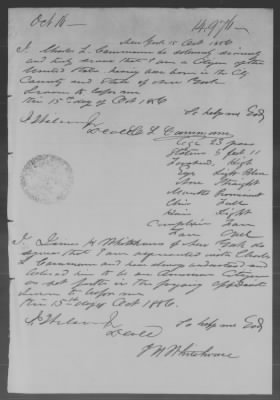 Oct 16
14.976
New York 15 Oct 1886
I Charles L. Cammann do solemnly
and truly swear that I am a Citizen of the
United States having been born in the City
County and State of New York
Sworn to before me
this 15th day of Oct 1886
So help me God
C L Cammann
Age 23 years
Stature 5 feet 11
Forehead, High
Eyes Light Blue
Nose Straight
Mouth
Chin Full
Hair Light
Complexion Fair
Face Oval
I James H Whitehouse of New York do
swear that I am acquainted with Charles
L Cammann and
him to be an American Citizen
as set forth in the
Sworn to before me
this 15th day of Oct 1886.
So help me God
J H Whitehouse